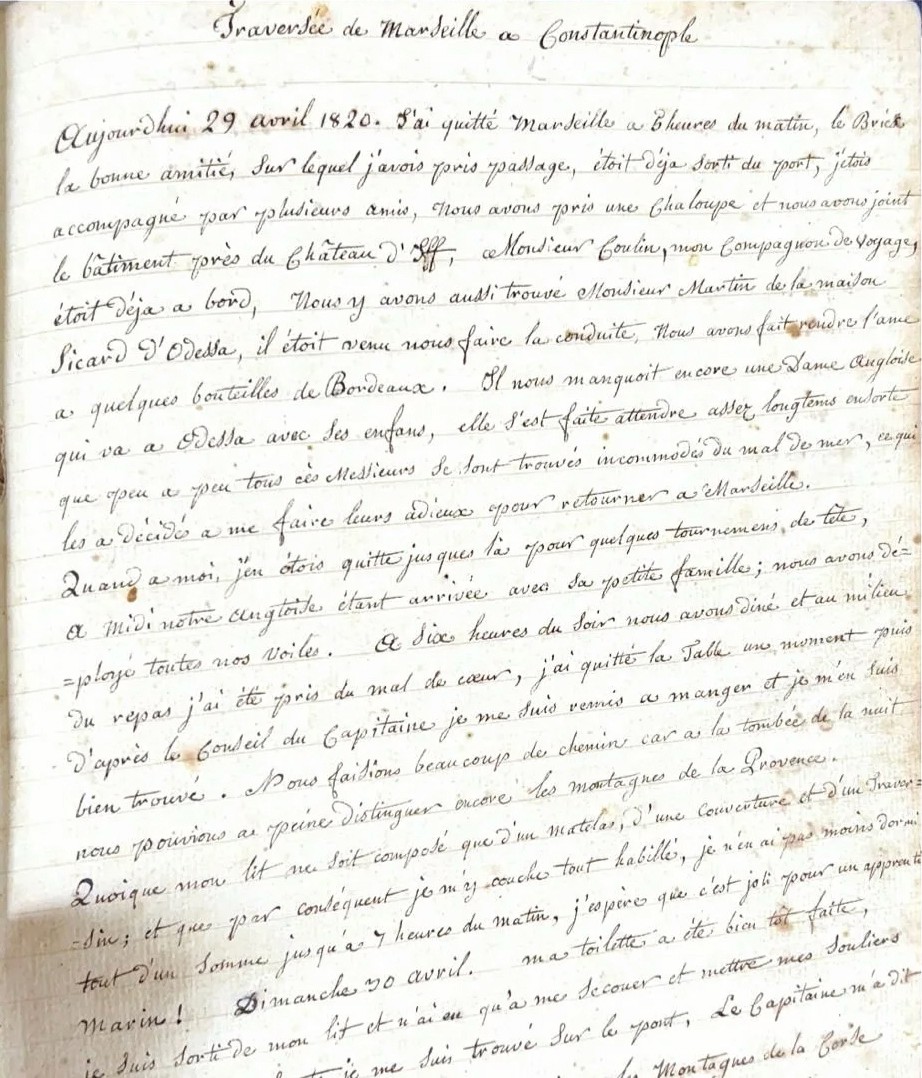 Traversée de Marseille a Constantinople
Aujourdhui 29 avril 1820. J'ai quitté Marseille a 8 heures du matin, le Brick
la bonne amitié, sur lequel j'avois pris passage, étoit déja sorti du port, j'étois
accompagné par plusieurs amis, Nous avons pris une Chaloupe et nous avons joint
le bâtiment près du Château d'Iff, Monsieur Coulin, mon Compagnon de Voyage,
étoit déja a bord, Nous y avons aussi trouvé Monsieur Martin de la maison
Sicard d'Odessa, il étoit venu nous faire la conduite, Nous avons fait rendre l'ame
a quelques bouteilles de Bordeaux. Il nous manquoit encore une Dame Angloise
qui va a Odessa avec ses enfans, elle s'est faite attendre assez longtems ensorte
que peu a peu tous ces Messieurs se sont trouvés incommodés du mal de mer, ce qui
les a décidé a me faire leurs adieux pour retourner a Marseille.
Quand a moi, j'en étois quitte jusques là pour quelques tournemens de tête,
a midi notre Angloise étant arrivée avec sa petite famille; nous avons dé=
=ployé toutes nos voiles. A six heures du soir nous avons diné et au milieu
du repas j'ai été pris du mal de cœur, j'ai quitté la Table un moment puis
d'après le Conseil du Capitaine je me suis remis a manger et je m'en suis
bien trouvé. Nous faisions beaucoup de chemin car a la tombée de la nuit
nous pouvions a peine distinguer encore les montagnes de la Provence.
Quoique mon lit ne soit composé que d'un matelas, d'une couverture et d'un Traver=
=sin; et que par conséquent je m'y couche tout habillé, je n'en ai pas moins dormi
tout d'un somme jusqu'a 7 heures du matin, j'espère que c'est joli pour un apprenti
Marin! Dimanche 30 avril. ma toilette a été bien tôt faite,
je suis sorti de mon lit et n'ai eu qu'a me secouer et mettre mes souliers
je me suis trouvé sur le pont, Le Capitaine m'a dit
Montagnes de la Corse